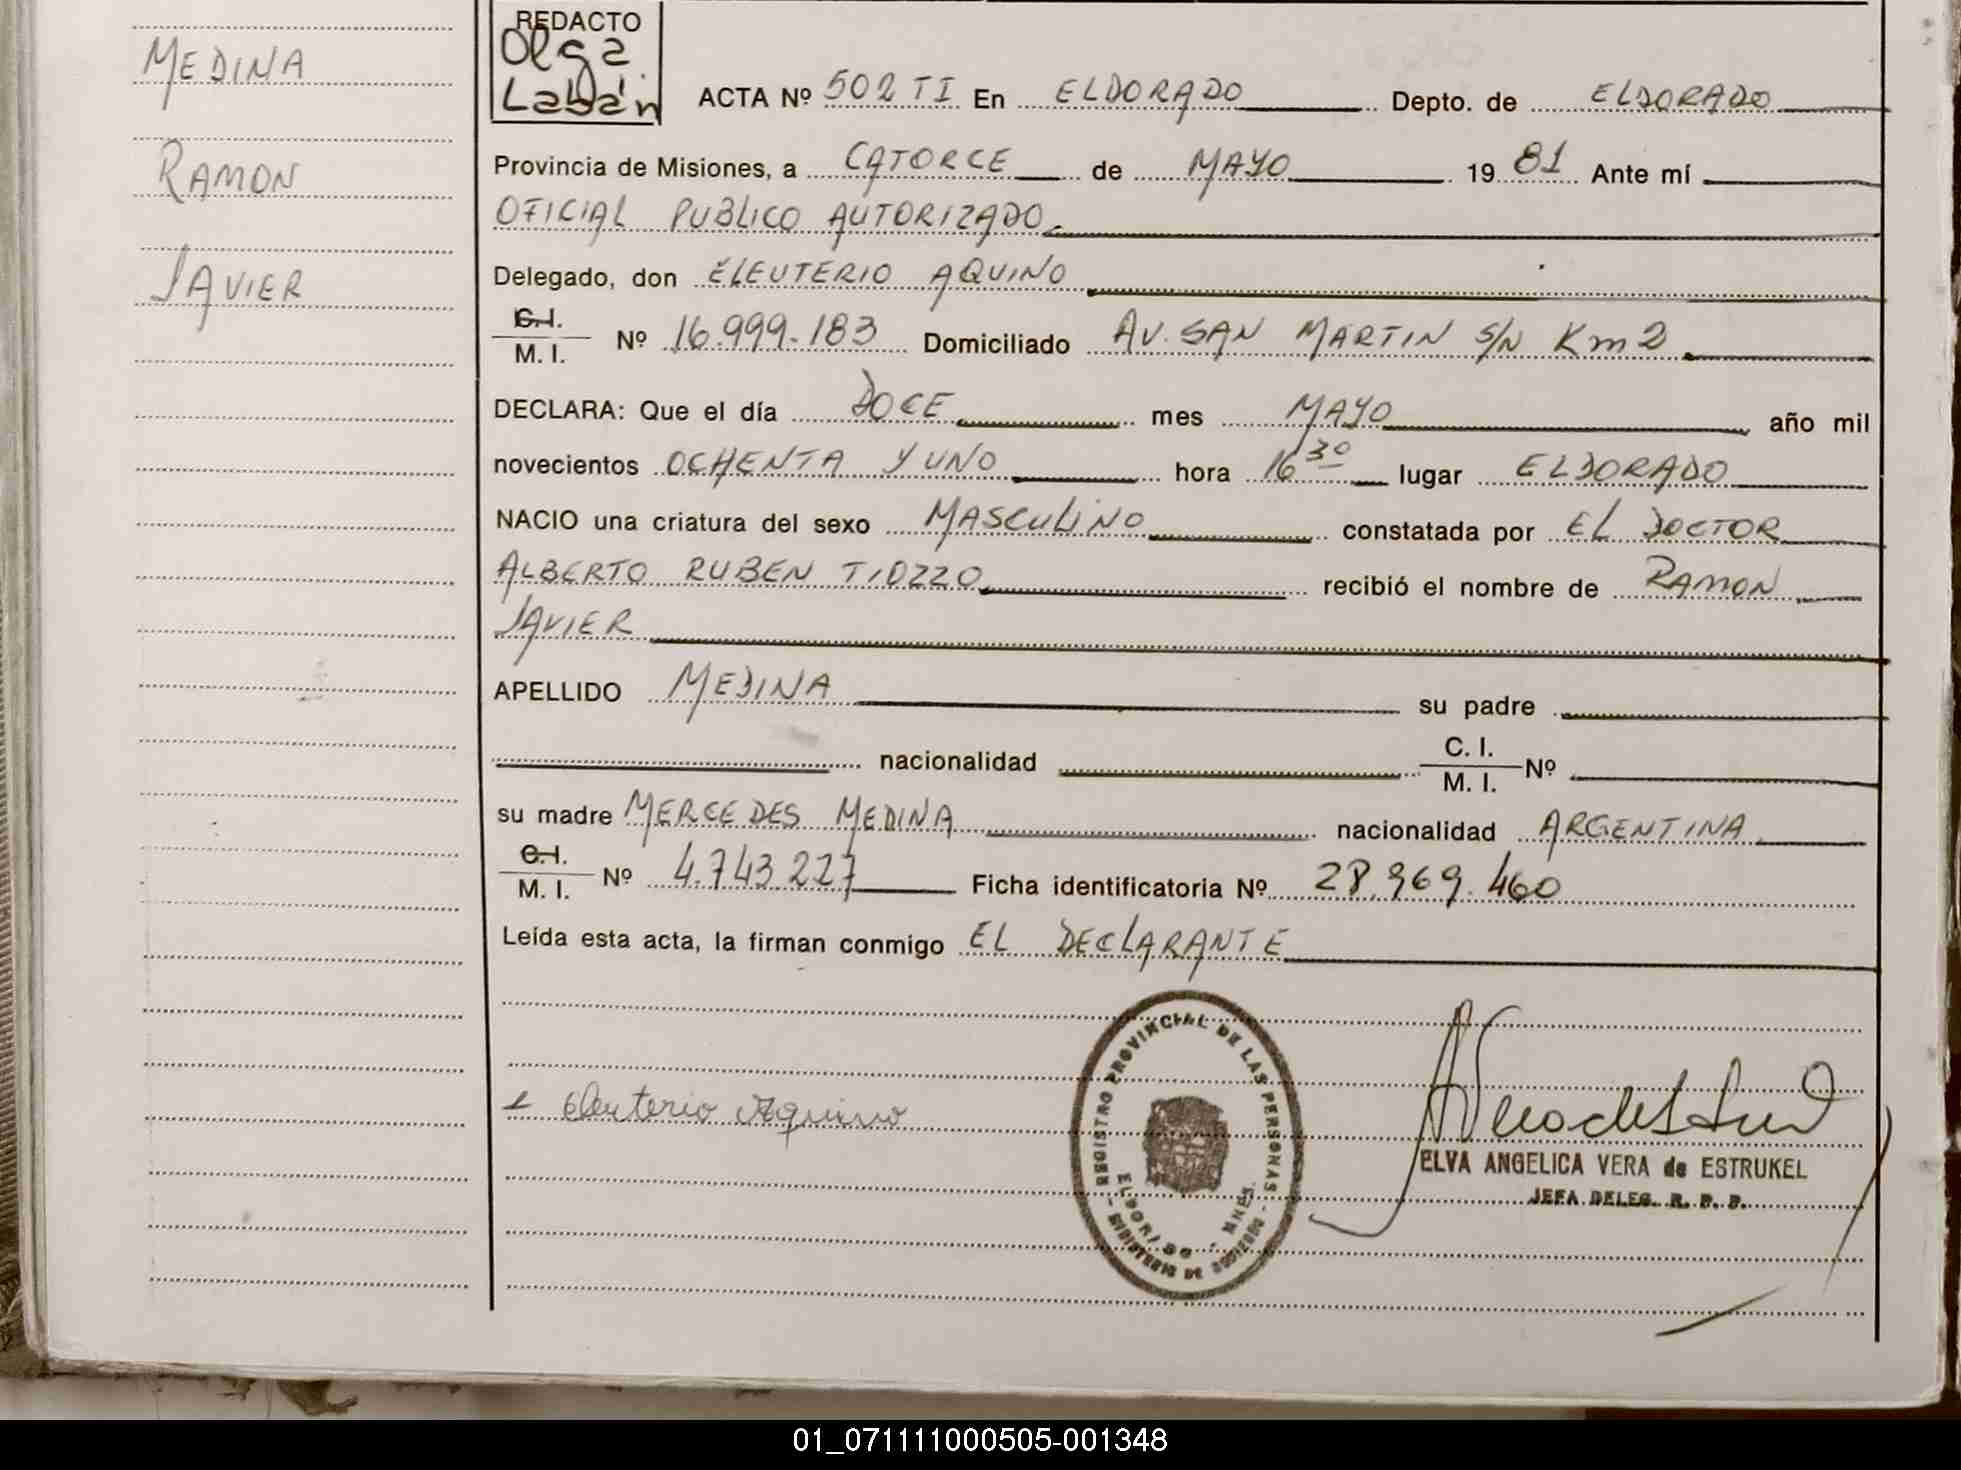 MEDINA
RAMON
JAVIER
REDACTO
Olga
Labán
ACTA Nº 502 TI En ELDORADO Depto. de ELDORADO
Provincia de Misiones, a CATORCE de MAYO 19 81 Ante mí
OFICIAL PUBLICO AUTORIZADO
Delegado, don ELEUTERIO AQUINO
C.I.
M. I. Nº 16.999.183 Domiciliado AV. SAN MARTIN S/N Km 2
DECLARA: Que el día DOCE mes MAYO año mil
novecientos OCHENTA Y UNO hora 16 30 lugar ELDORADO
NACIO una criatura del sexo MASCULINO constatada por EL DOCTOR
ALBERTO RUBEN TIOZZO recibió el nombre de RAMON
JAVIER
APELLIDO MEDINA su padre
nacionalidad C. I.
M. I. Nº
su madre MERCEDES MEDINA nacionalidad ARGENTINA
C.I.
M. I. Nº 4.743.227 Ficha identificatoria Nº 28.969.460
Leída esta acta, la firman conmigo EL DECLARANTE
Eleuterio Aquino
REGISTRO PROVINCIAL DE LAS PERSONAS
ELDORADO - MNES.
MINISTERIO DE GOBIERNO
ELVA ANGELICA VERA de ESTRUKEL
JEFA DELEG. R. P. P.
01_071111000505-001348